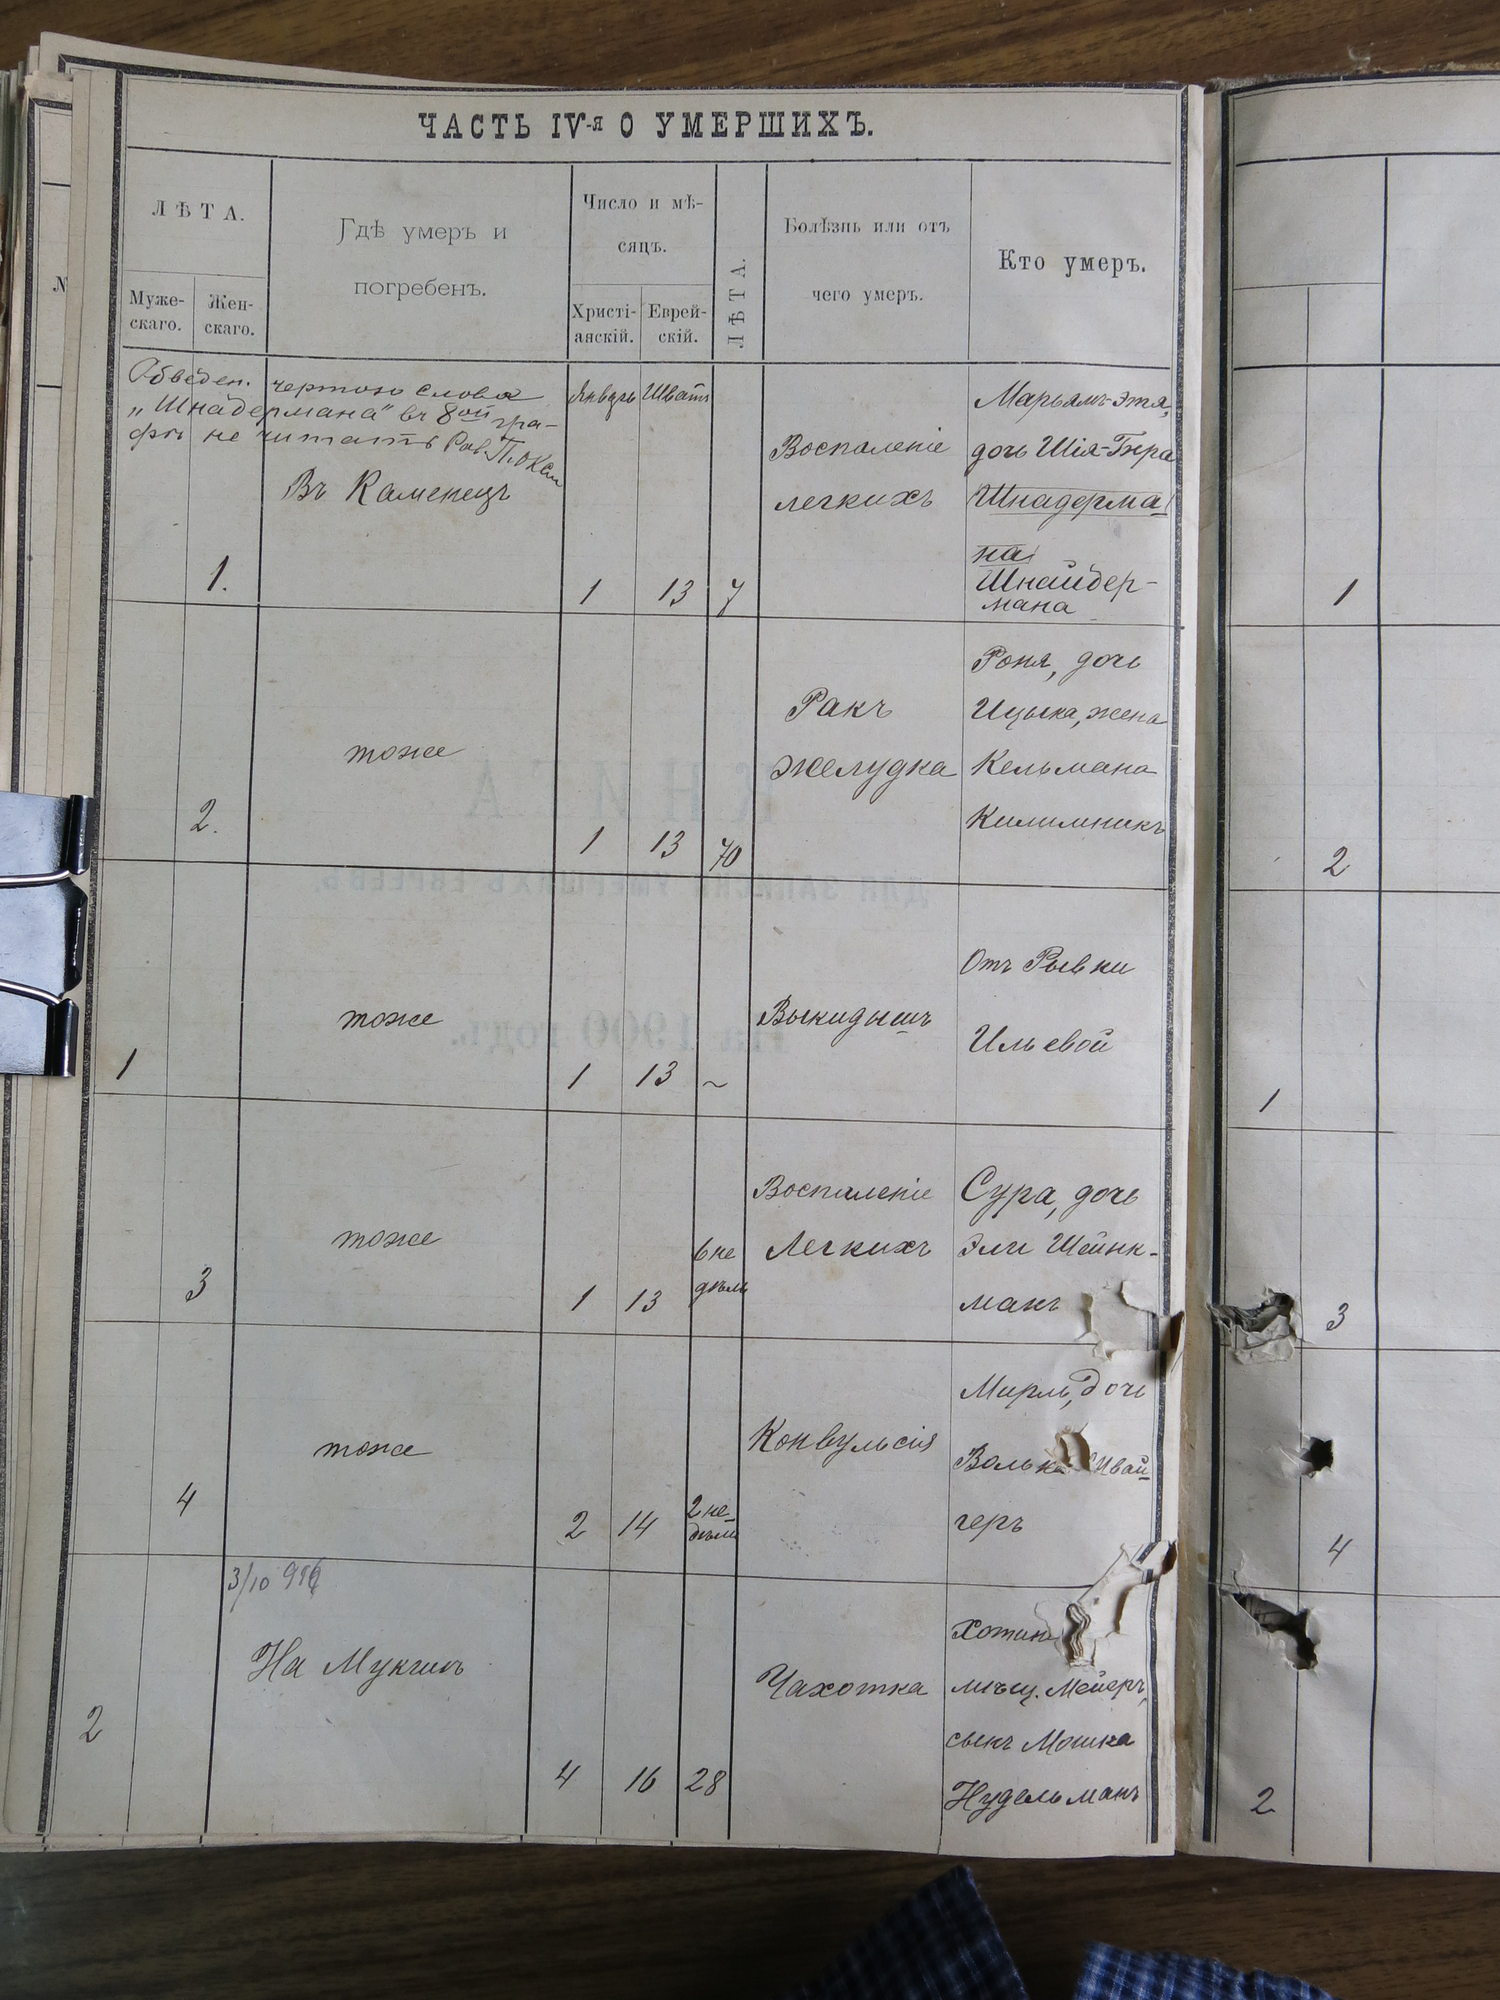 ЧАСТЬ IV-я О УМЕРШИХЪ.
ЛѢТА.
Муже-
скаго.
Жен-
скаго.
Гдѣ умеръ и
погребенъ.
Число и мѣ-
сяцъ.
Христі-
анскій.
Еврей-
скій.
ЛѢТА.
Болѣзнь или отъ
чего умеръ.
Кто умеръ.
Обведен. чертою слова
„Шнадермана" въ 8ой гра-
фѣ не читать Рав.
Январь
Шватъ
1.
Въ Каменецъ
1
13
7
Воспаленіе
легкихъ
Марьямъ-Этя,
дочь Шія-Бера
Шнадерма
на
Шнайдер-
мана
1
2.
тоже
1
13
70
Ракъ
желудка
Роня, дочь
Ицыка, жена
Кельмана
Килимникъ
2
1
тоже
1
13
~
Выкидышъ
Отъ Рывки
Ильевой
1
3
тоже
1
13
6 не
дѣль
Воспаленіе
Легкихъ
Сура, дочь
Эли Шейнк-
манъ
3
4
тоже
2
14
2 не-
дѣли
Конвульсія
Мирль, дочь
Волька
геръ
4
3/10
2
На Мукшѣ
4
16
28
Чахотка
Хотин
мѣщ. Мейеръ,
сынъ Мошка
Нудельманъ
2